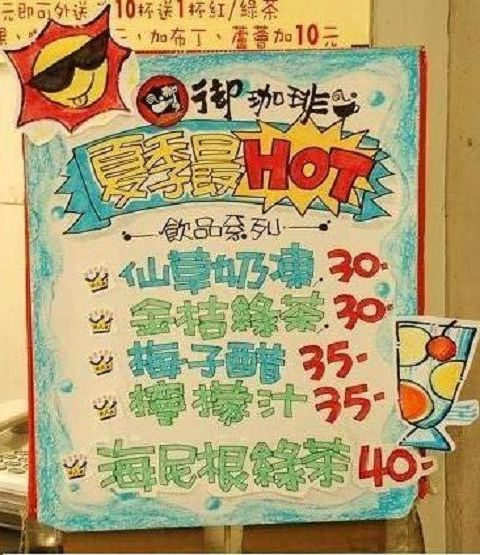 元即可外送 10杯送1杯紅/綠茶
加布丁、蘆薈加10元
御珈琲
夏季最HOT
飲品系列
仙草奶凍.30-
金桔綠茶.30-
梅子醋 35-
檸檬汁 35-
海尼根綠茶 40-